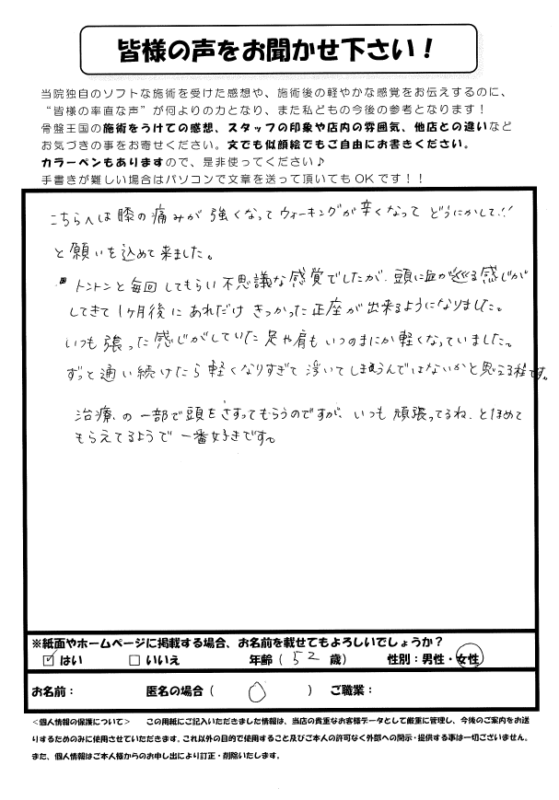 皆様の声をお聞かせ下さい！
当院独自のソフトな施術を受けた感想や、施術後の軽やかな感覚をお伝えするのに、
“皆様の率直な声”が何よりの力となり、また私どもの今後の参考となります！
骨盤王国の施術をうけての感想、スタッフの印象や店内の雰囲気、他店との違いなど
お気づきの事をお寄せください。文でも似顔絵でもご自由にお書きください。
カラーペンもありますので、是非使ってください♪
手書きが難しい場合はパソコンで文章を送って頂いてもOKです！！
こちらへは膝の痛みが強くなってウォーキングが辛くなってどうにかして!!
と願いを込めて来ました。
トントンと毎回してもらい不思議な感覚でしたが、頭に血が巡る感じが
してきて1ヶ月後にあれだけきつかった正座が出来るようになりました。
いつも張った感じがしていた足や肩もいつのまにか軽くなっていました。
ずっと通い続けたら軽くなりすぎて浮いてしまうんではないかと思える程です。
治療の一部で頭をさすってもらうのですが、いつも頑張ってるね、とほめて
もらえてるようで一番好きです。
※紙面やホームページに掲載する場合、お名前を載せてもよろしいでしょうか？
☑はい　□いいえ　年齢（52歳）　性別：男性・女性
お名前：　匿名の場合（　○　）　ご職業：
＜個人情報の保護について＞　この用紙にご記入いただきました情報は、当店の貴重なお客様データとして厳重に管理し、今後のご案内をお送
りするためのみに使用させていただきます。これ以外の目的で使用すること及びご本人の許可なく外部への開示・提供する事は一切ございません。
また、個人情報はご本人様からのお申し出により訂正・削除いたします。